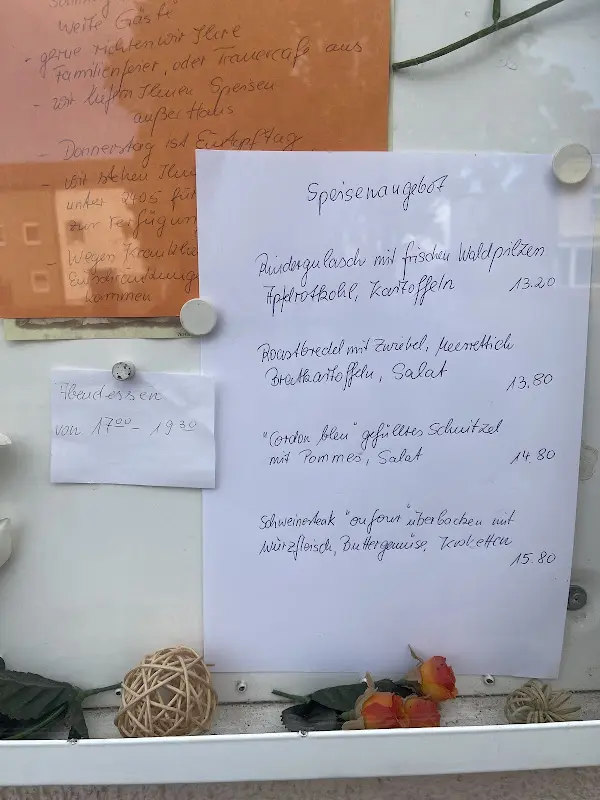 werte Gäste
- gerne richten wir Ihre
Familienfeier, oder Trauercafe aus
- wir liefern Ihnen Speisen
außer Haus
- Donnerstag ist Eintopftag
- wir stehen Ihn
unter 2405 für
zur Verfügung
- Wegen Krankhe
Einschränkung
kommen
Speisenangebot
Rindergulasch mit frischen Waldpilzen
Apfelrotkohl, Kartoffeln 13.20
Roastbredel mit Zwiebel, Meerrettich
Bratkartoffeln, Salat 13.80
"Cordon bleu" gefülltes Schnitzel
mit Pommes, Salat 14.80
Schweinesteak "au four" überbacken mit
Würzfleisch, Buttergemüse, Kroketten
15.80
Abendessen
von 17⁰⁰ - 19³⁰